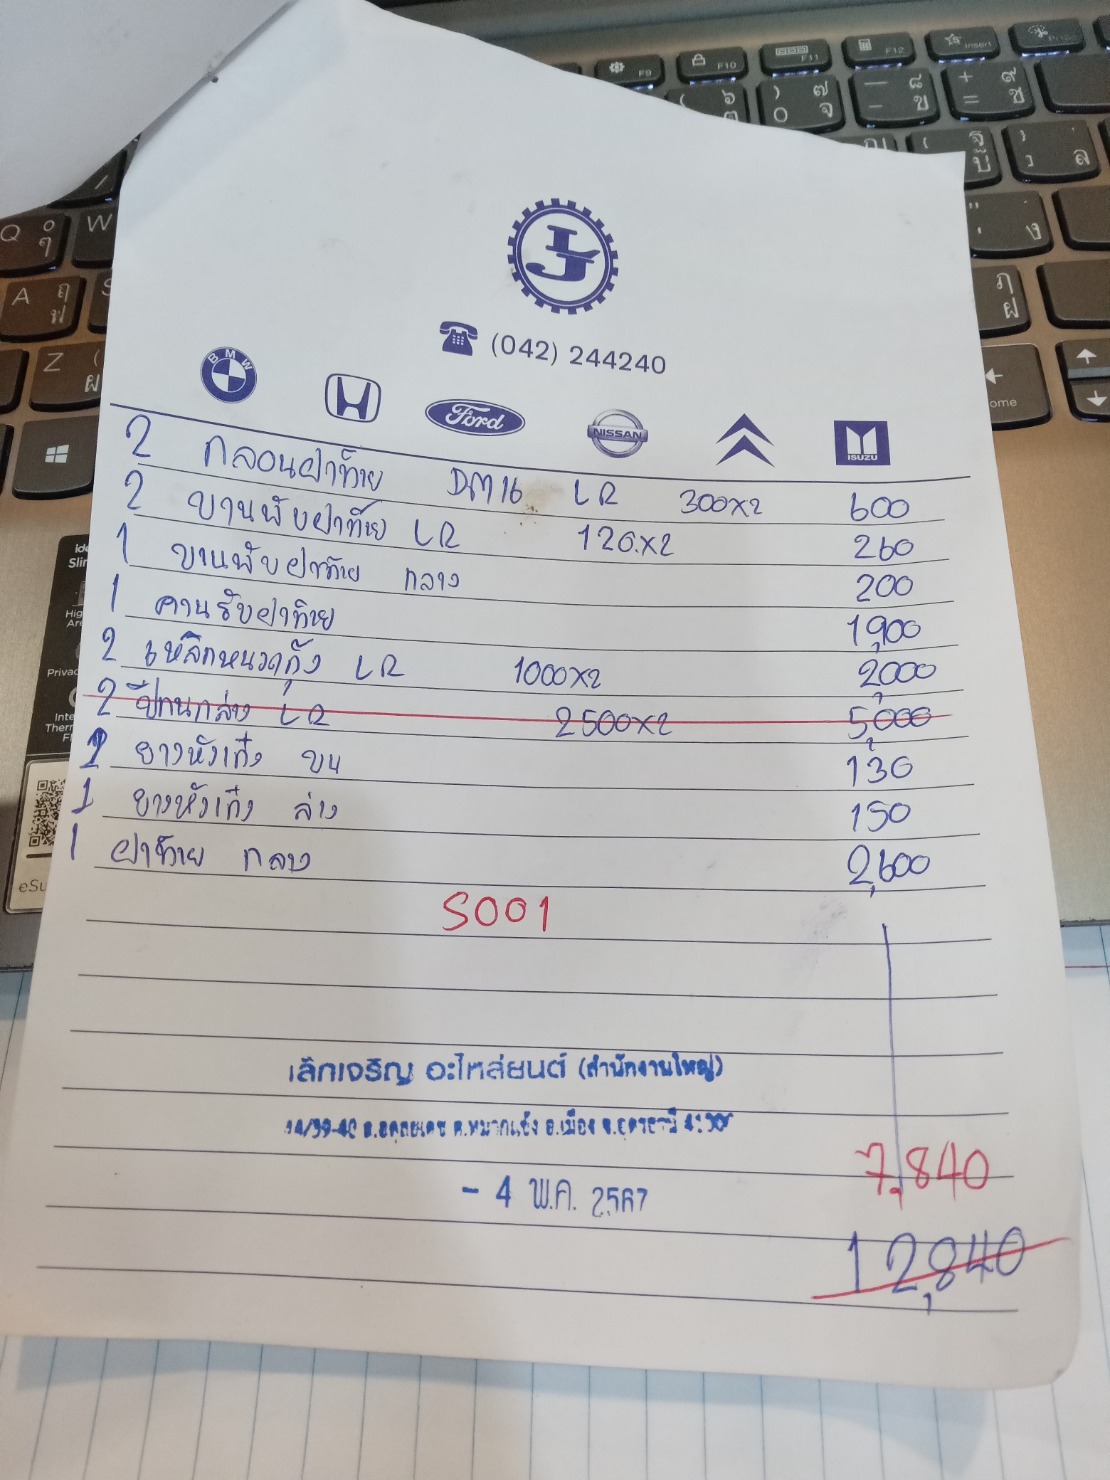 LJ
(042) 244240
BMW
Ford
NISSAN
ISUZU
2 กลอนฝาท้าย DM16 LR 300x2 600
2 บานพับฝาท้าย LR 120x2 260
1 บานพับฝาท้าย กลาง 200
1 คานรับฝาท้าย 1,900
2 เหล็กหนวดกุ้ง LR 1000x2 2,000
2 LR 2500x2 5,000
ยางหัวเก๋ง บน 130
1 ยางหัวเก๋ง ล่าง 150
1 ฝาท้าย กลาง 2,600
S001
เลิกเจริญ อะไหล่ยนต์ (สำนักงานใหญ่)
ต.หมากแข้ง อ.เมือง จ.อุดรธานี
- 4 พ.ค. 2567
7,840
12,840
F9
F10
F11
F12
Insert
Q
W
A
Z